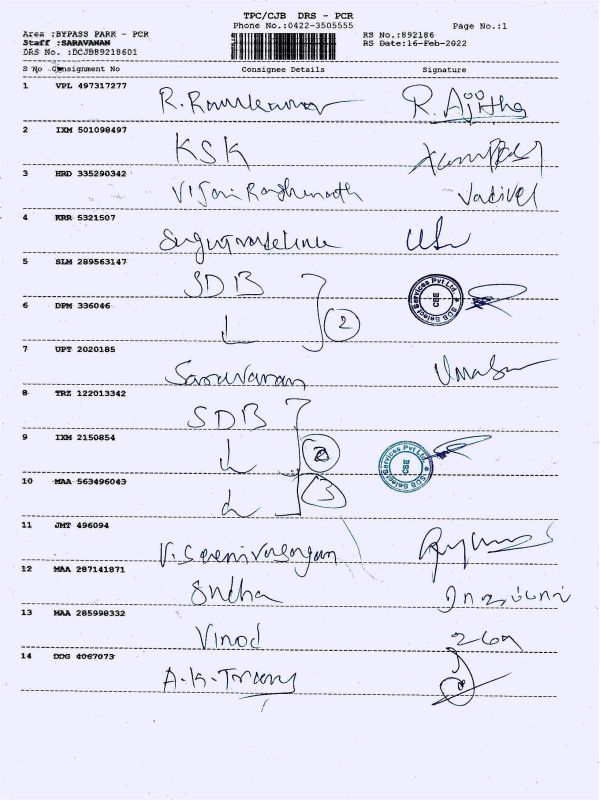 TPC/CJB DRS - PCR
Phone No.:0422-3505555
Page No.:1
Area :BYPASS PARK - PCR
RS No.:892186
Staff :SARAVANAN
RS Date:16-Feb-2022
DRS No. :DCJB89218601
S No Consignment No Consignee Details Signature
1 VPL 497317277 R. Ramkumar R. Ajitha
2 IXM 501098497 KSK
3 HRD 335290342 Vijai Raghunath Vadivel
4 KRR 5321507
5 SLM 289563147 SDB
SDB Select Services Pvt Ltd. CBE
6 DPM 336046 2
7 UPT 2020185 Saravanan
8 TRZ 122013342 SDB
9 IXM 2150854
SDB Select Services Pvt Ltd. CBE
10 MAA 563496043 3
11 JMT 496094 V. Seenivasagan
12 MAA 287141871 Sudha
13 MAA 285998332 Vinod உமா
14 DDG 4067073